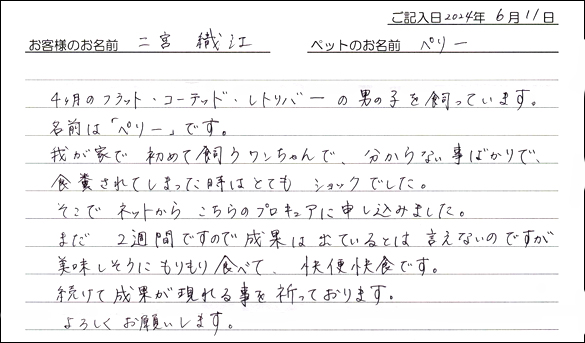 ご記入日2024年 6月11日
お客様のお名前 二宮 織江 ペットのお名前 ペリー
4ヶ月のフラット・コーテッド・レトリバーの男の子を飼っています。
名前は「ペリー」です。
我が家で初めて飼うワンちゃんで、分からない事ばかりで、
食糞されてしまった時はとてもショックでした。
そこでネットからこちらのプロキュアに申し込みました。
まだ2週間ですので成果は出ているとは言えないのですが
美味しそうにもりもり食べて、快便快食です。
続けて成果が現れる事を祈っております。
よろしくお願いします。